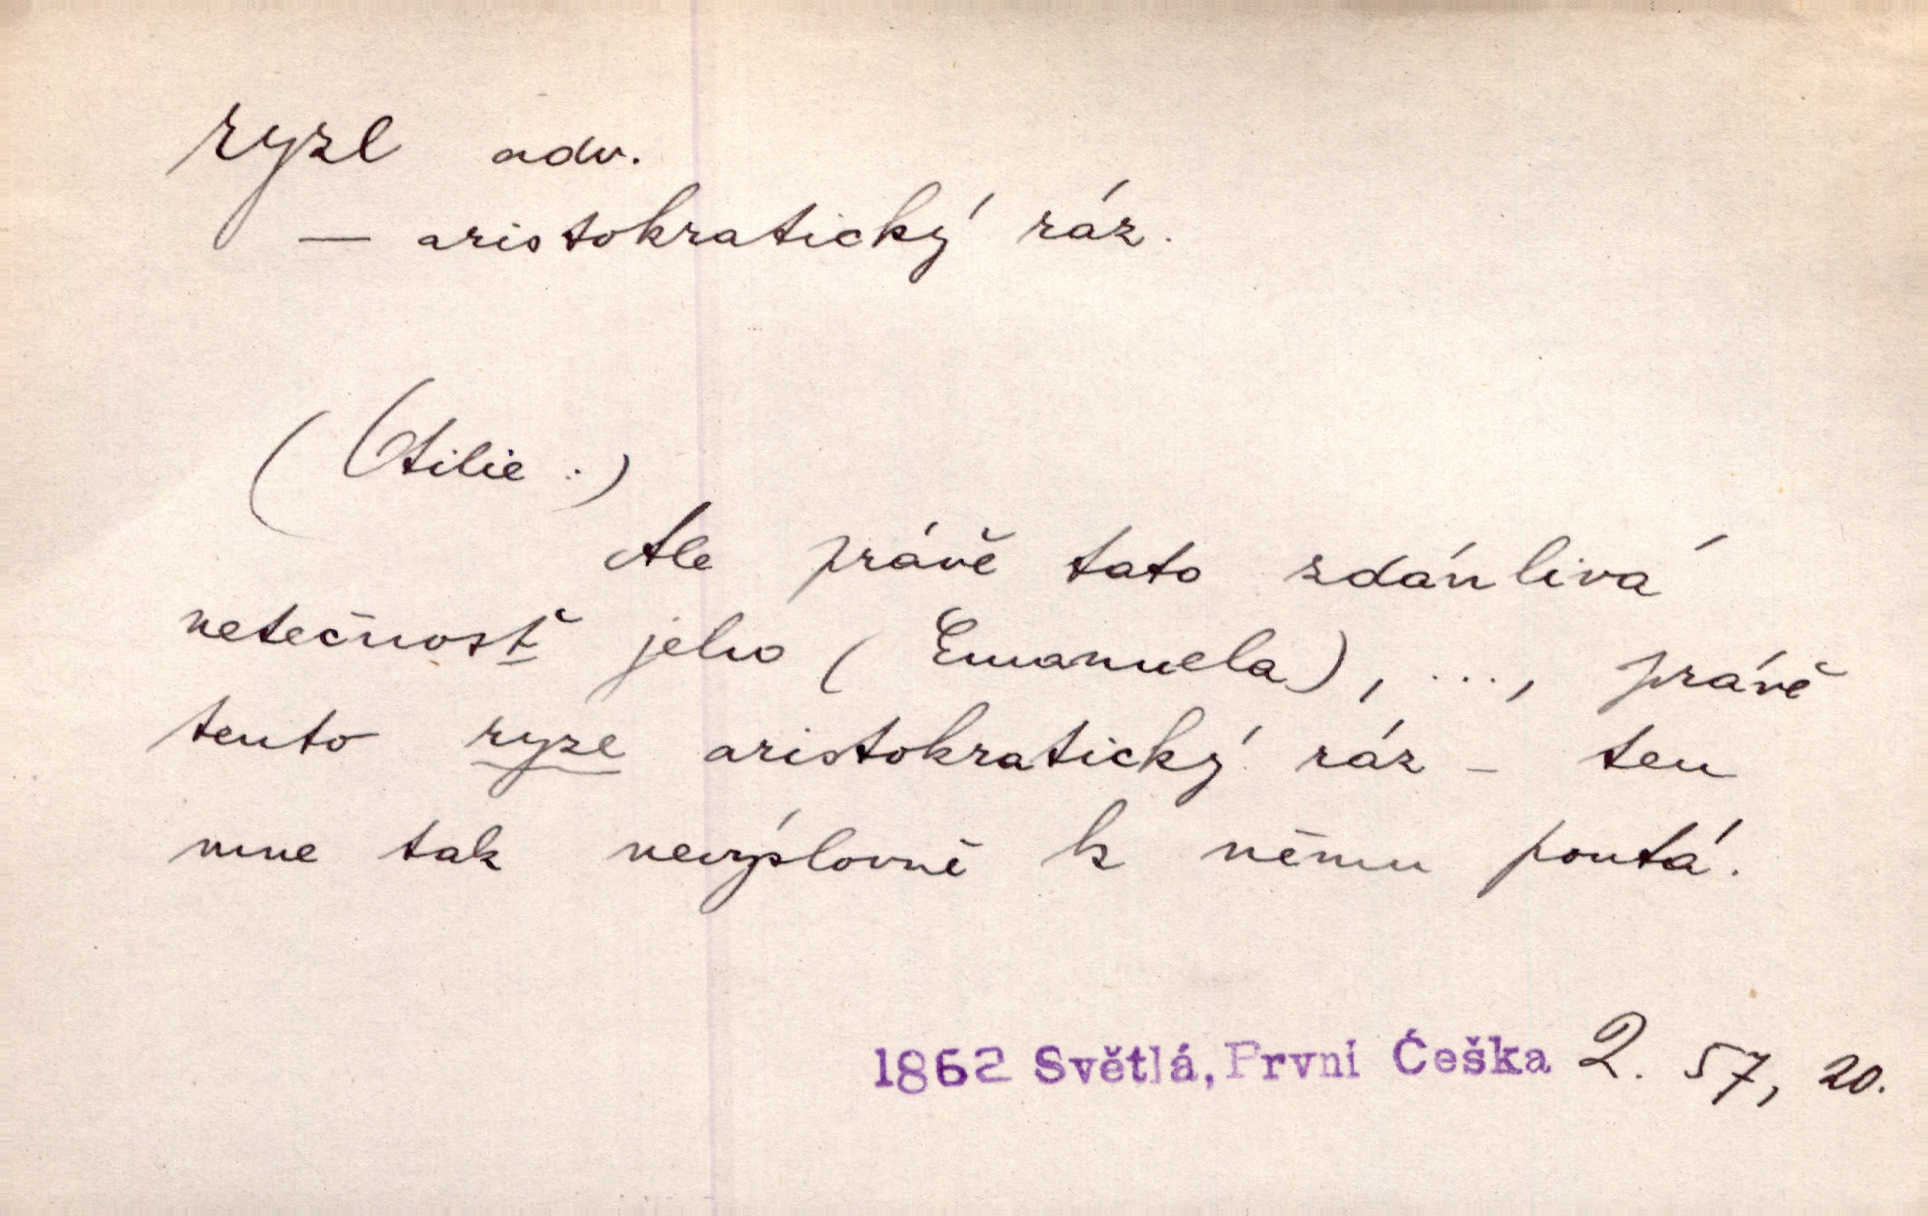 ryze adv.
— aristokratický ráz.
(Otilie:)
Ale právě tato zdánlivá
netečnosť jeho (Emanuela), ..., právě
tento ryze aristokratický ráz – ten
mne tak nevýslovně k němu poutá.
1862 Světlá, První Češka 2. 57, 20.